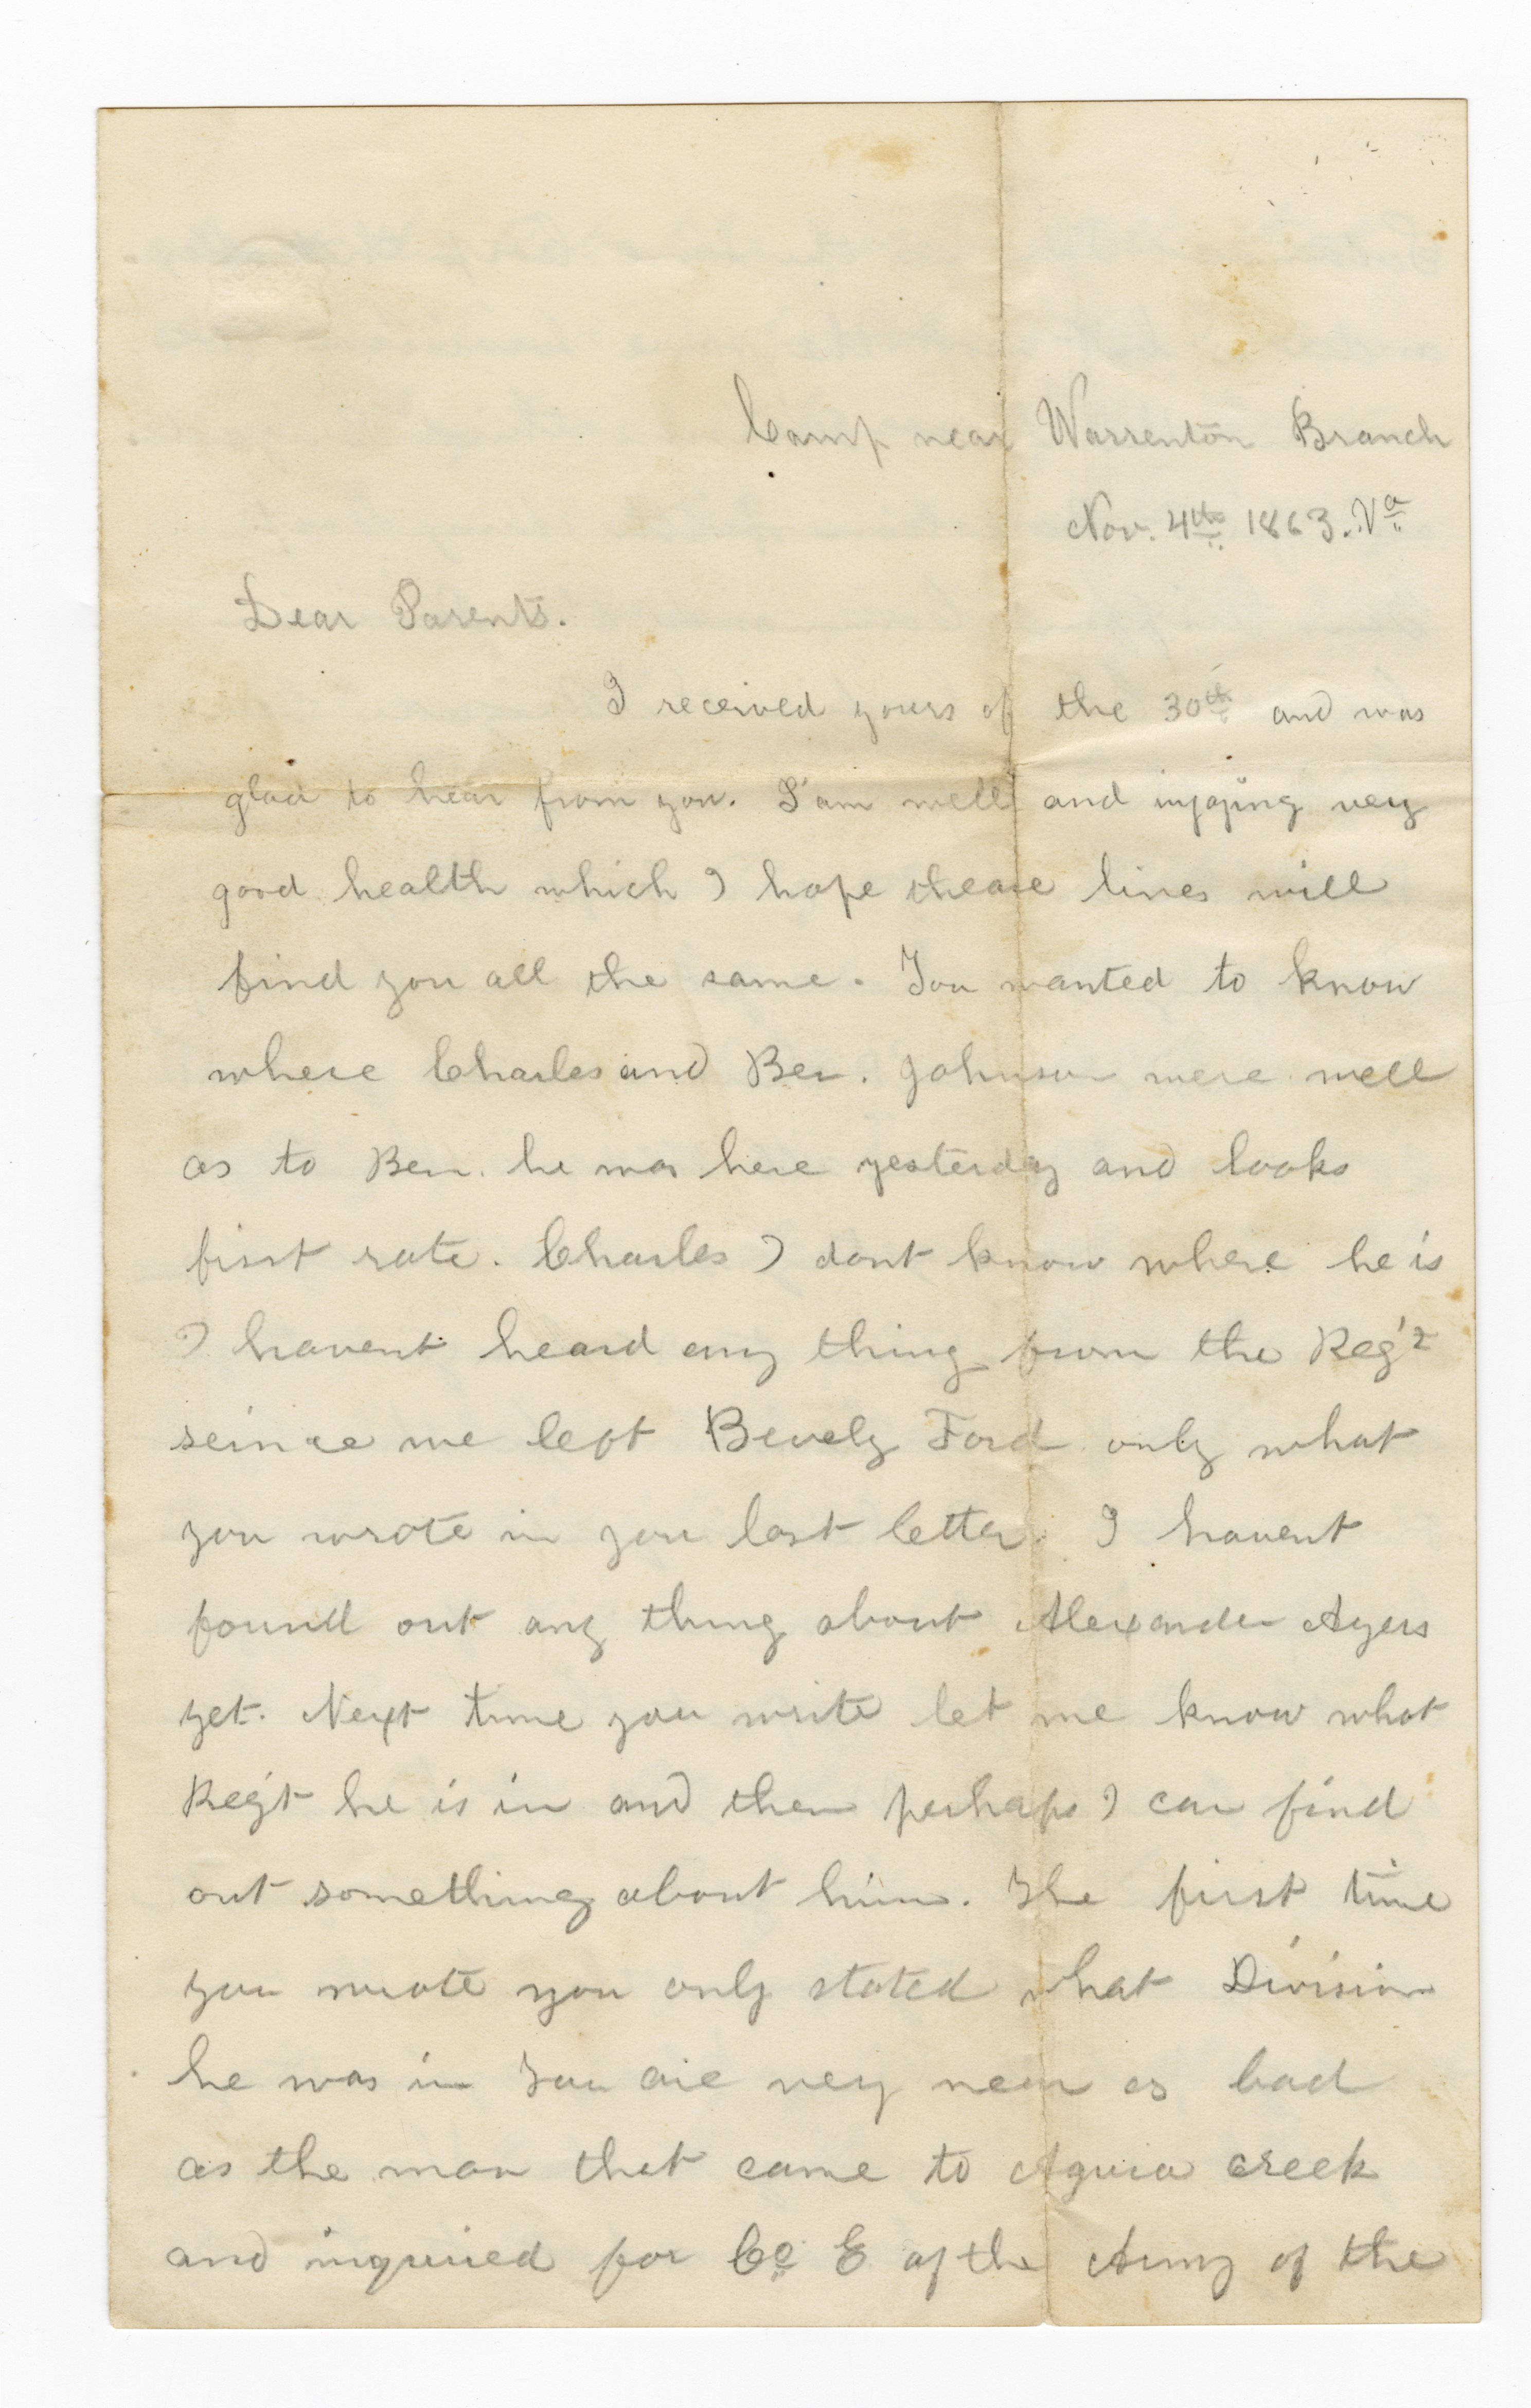 Camp near Warrenton Branch
Nov. 4th 1863. Va
Dear Parents.
I received yours of the 30th and was
glad to hear from you. I am well and injoying very
good health which I hope thease lines will
find you all the same. You wanted to know
where Charles and Ben. Johnson were well
as to Ben. he was here yesterday and looks
first rate. Charles I dont know where he is
I havent heard any thing from the Reg't
seince we left Bevely Ford only what
you wrote in you last letter. I havent
found out any thing about Alexander Ayers
yet. Next time you write let me know what
Reg't he is in and then perhaps I can find
out something about him. The first time
you wrote you only stated what Division
he was in You are very near as bad
as the man that came to Aquia creek
and inquired for Co E of the Army of the